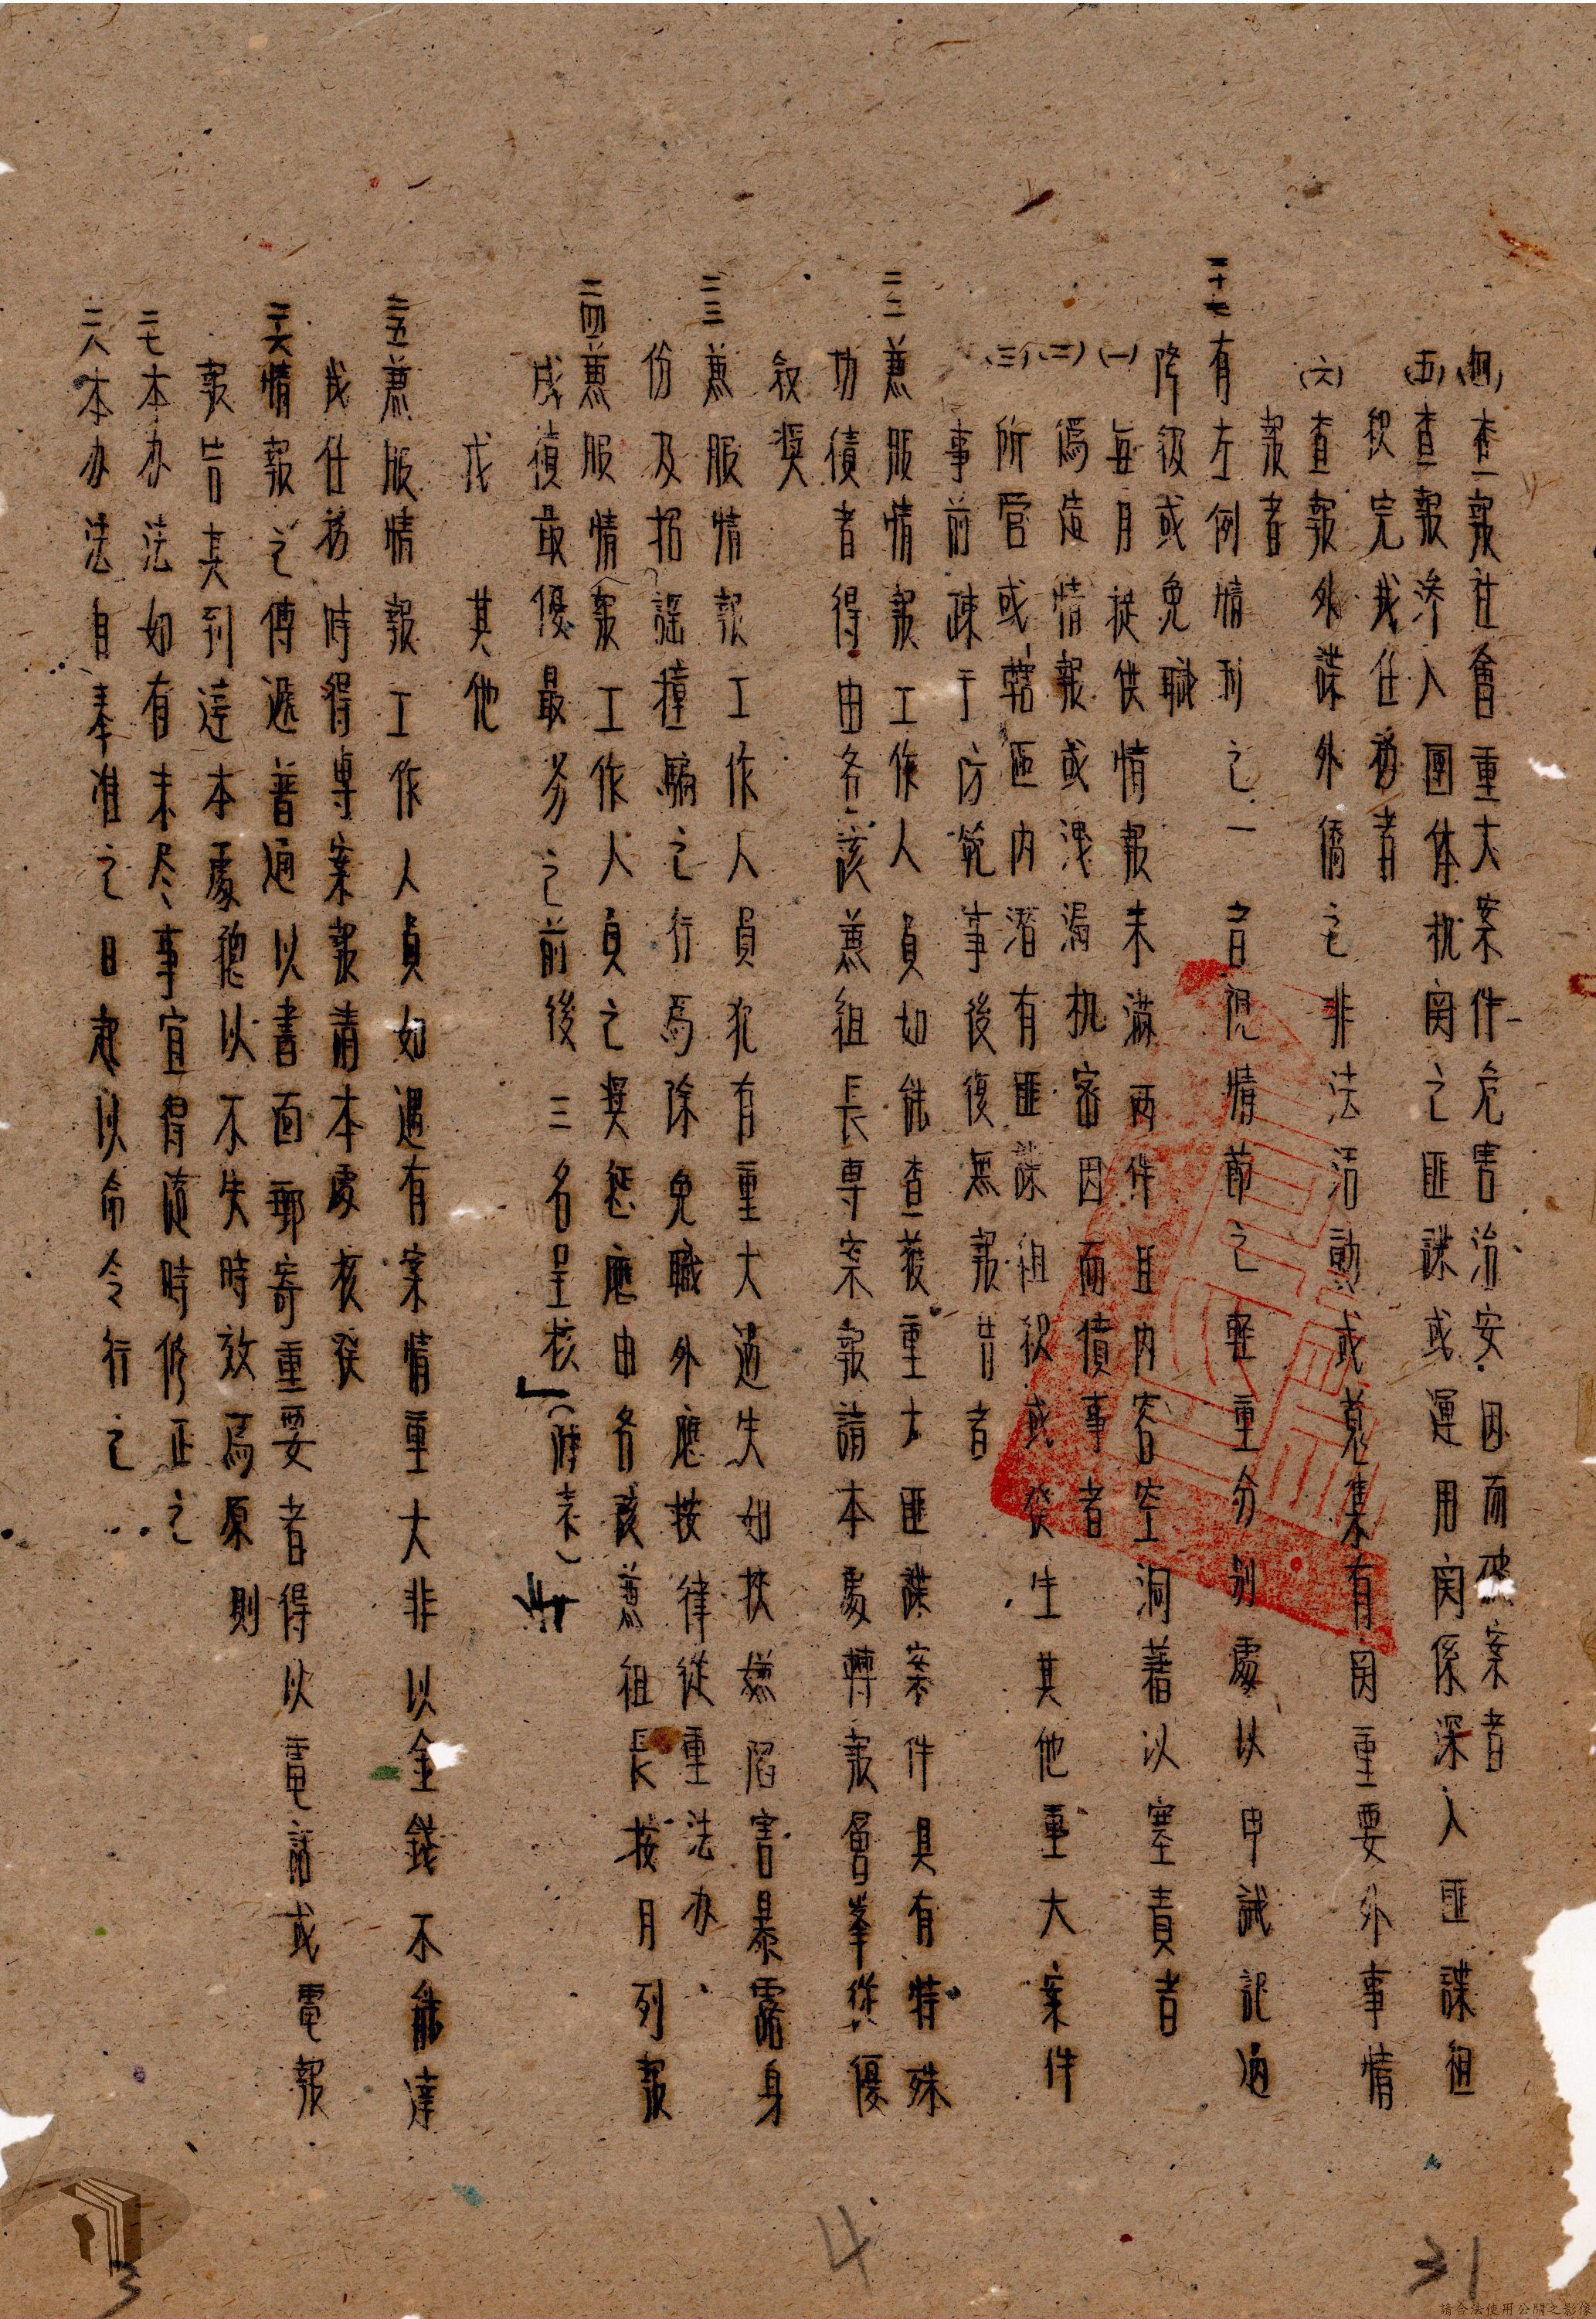 (四)查報社會重大案件危害治安因而破案者
(五)查報滲入團体机関之匪諜或運用関係深入匪諜組
织完我任務者
(六)查報外諜外僑之非法活動或蒐集有関重要外事情
報者
有左例情形之一者視情節之輕重分別處以申誡記過
降級或免職
(一)每月提供情報未滿兩件且內容空洞藉以塞責者
(二)偽造情報或洩漏机密因而僨事者
(三)所管或轄區內潛有匪諜組织或發生其他重大案件
事前疎于防範事後復無報告者
二二兼服情報工作人員如能查獲重大匪諜案件具有特殊
功績者得由各該兼組長專案報請本處轉報層峯從優
敘獎
二三兼服情報工作人員犯有重大過失如挾嫌陷害暴露身
份及招謡撞騙之行為除免職外應按律從重法办
二四兼服情報工作人員之獎懲應由各該兼組長按月列報
成績最優最劣之前後三名呈核」(附表)
戊 其他
二五兼服情報工作人員如遇有案情重大非以金錢不能達
我任務時得專案報請本處核發
二六情報之傳遞普通以書面郵寄重要者得以電話或電報
報告其到達本處總以不失時效為原則
二七本办法如有未尽事宜得随時修正之
二八本办法自奉准之日起以命令行之
4
31
3
請合法使用公開之影像